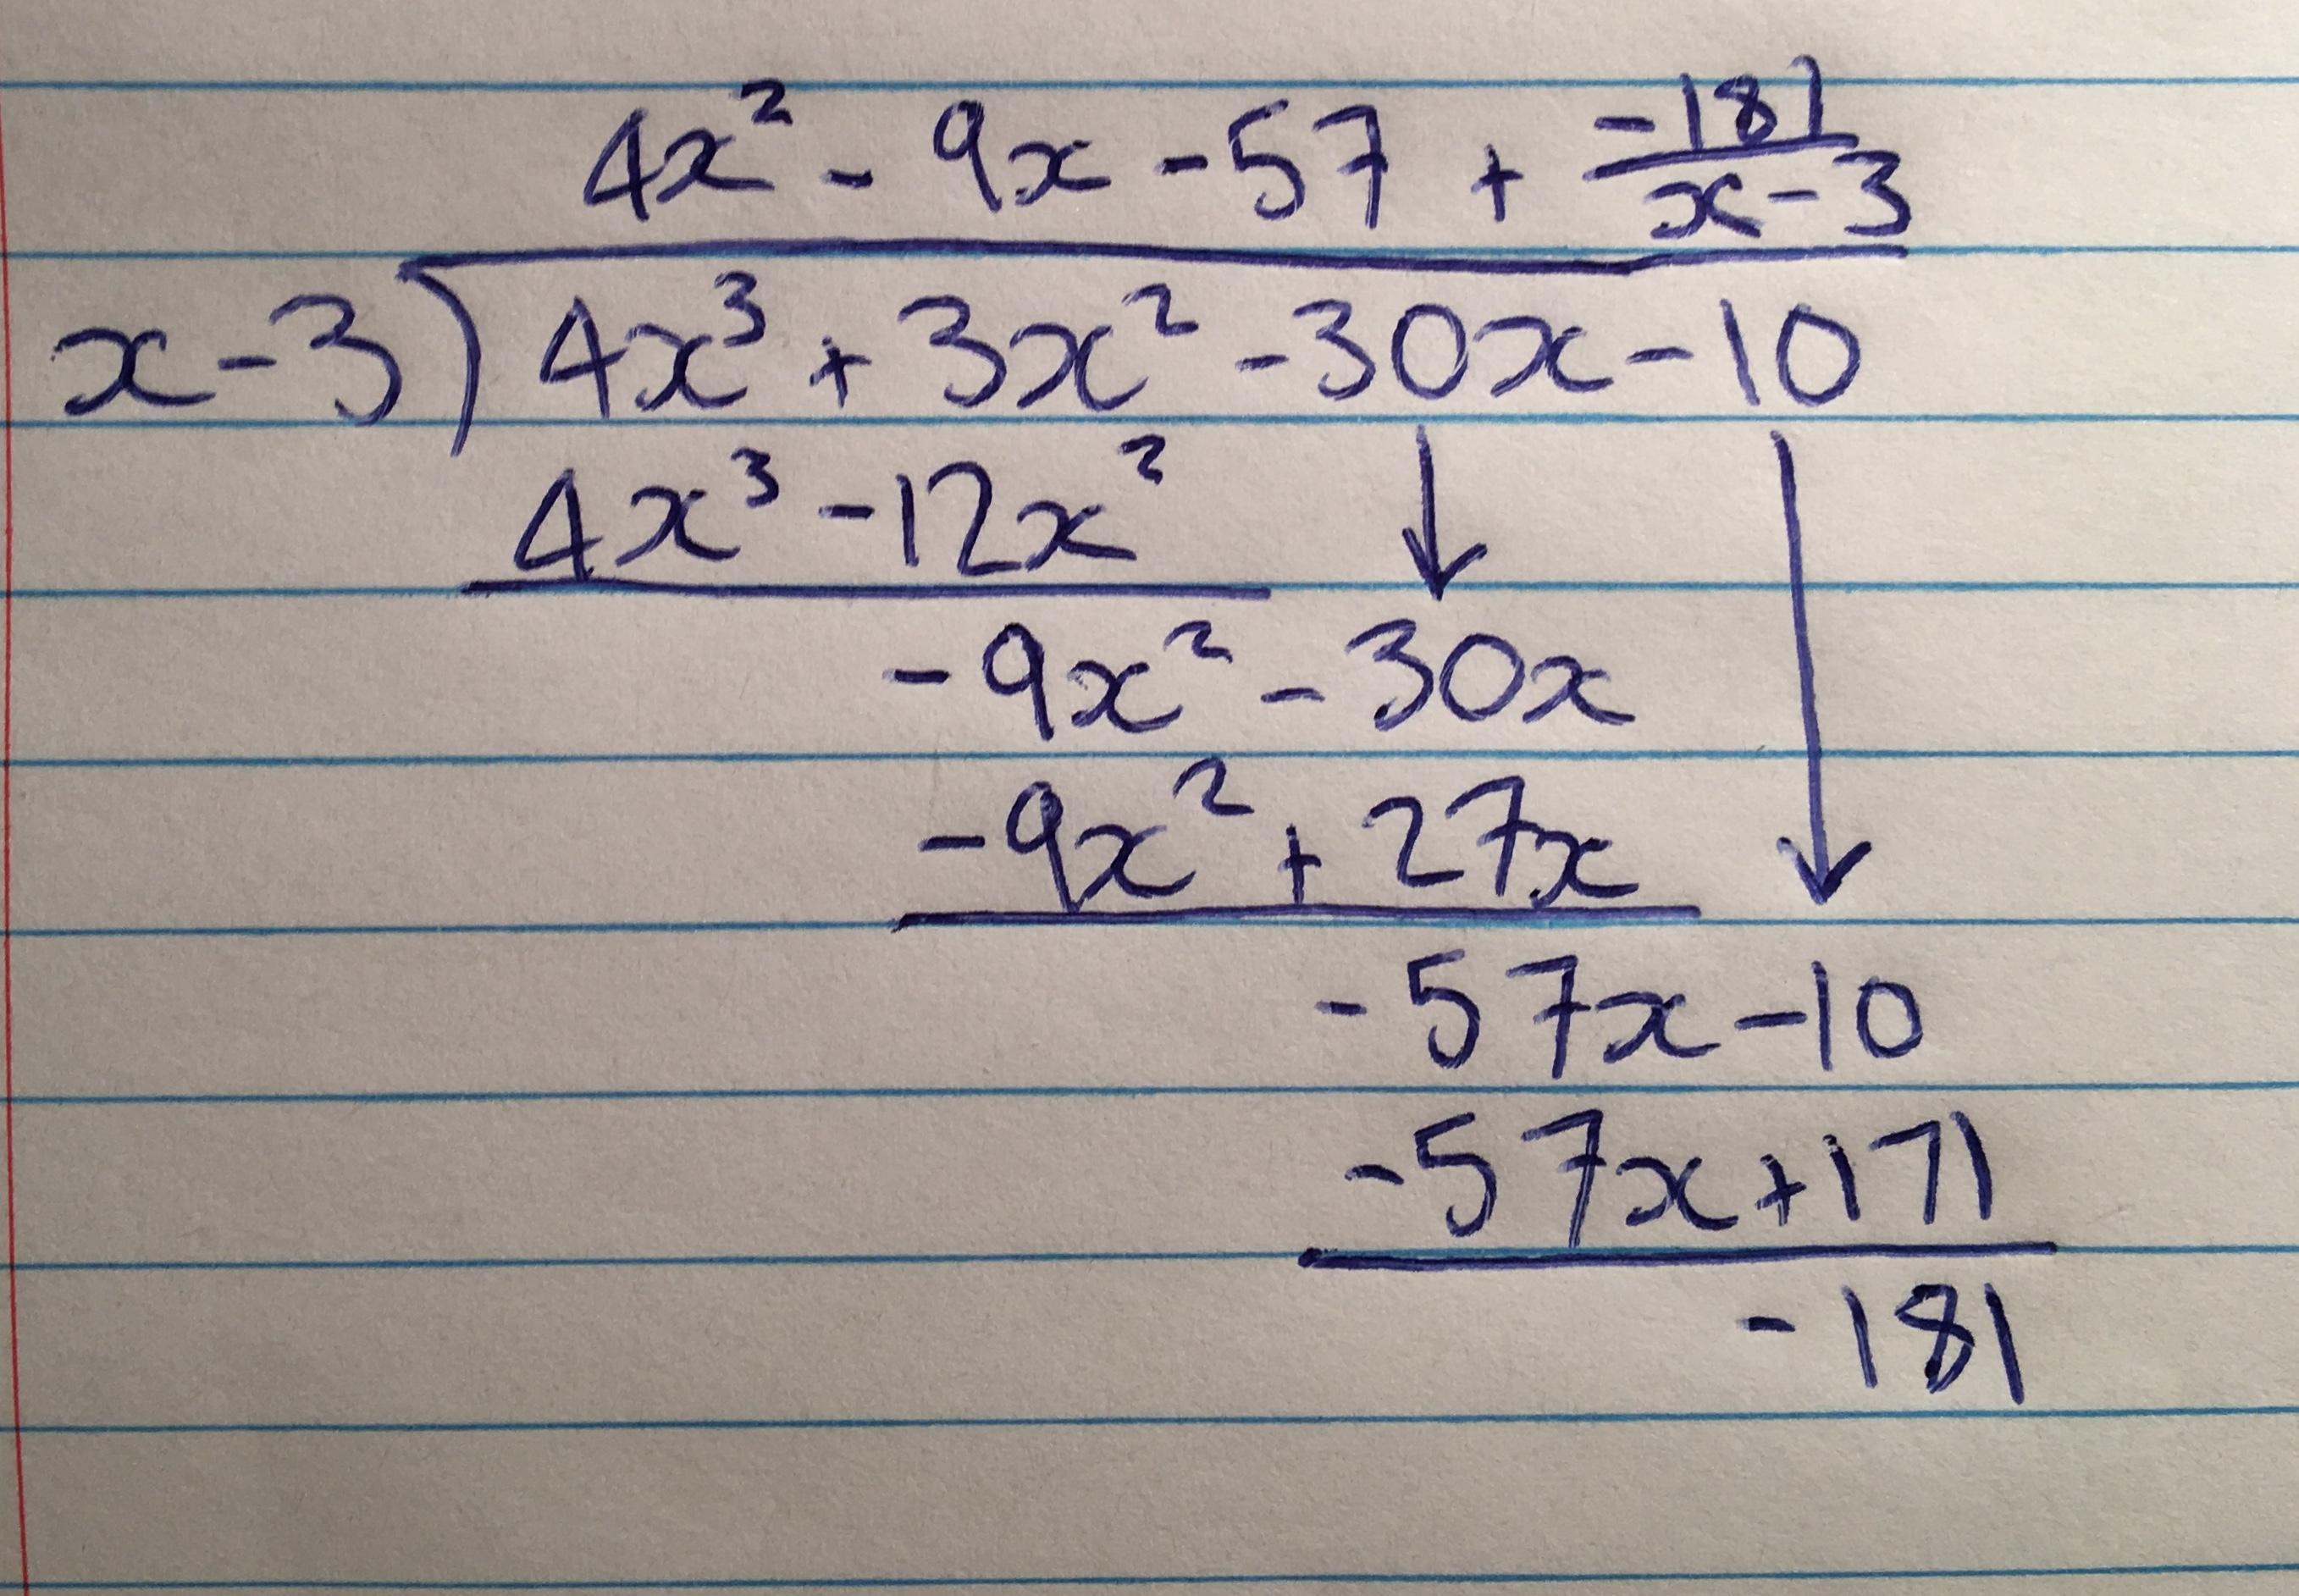 4x² - 9x - 57 + -181/x-3
x-3) 4x³ + 3x² - 30x - 10
4x³ - 12x²
- 9x² - 30x
- 9x² + 27x
- 57x - 10
- 57x + 171
- 181